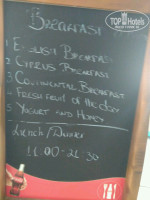 TOP Hotels
Breakfast
1 English Breakfast
2 Cyprus Breakfast
3 Continental Breakfast
4 Fresh fruit of the day
5 Yogurt and Honey
Lunch/Dinner
11:00-21:30